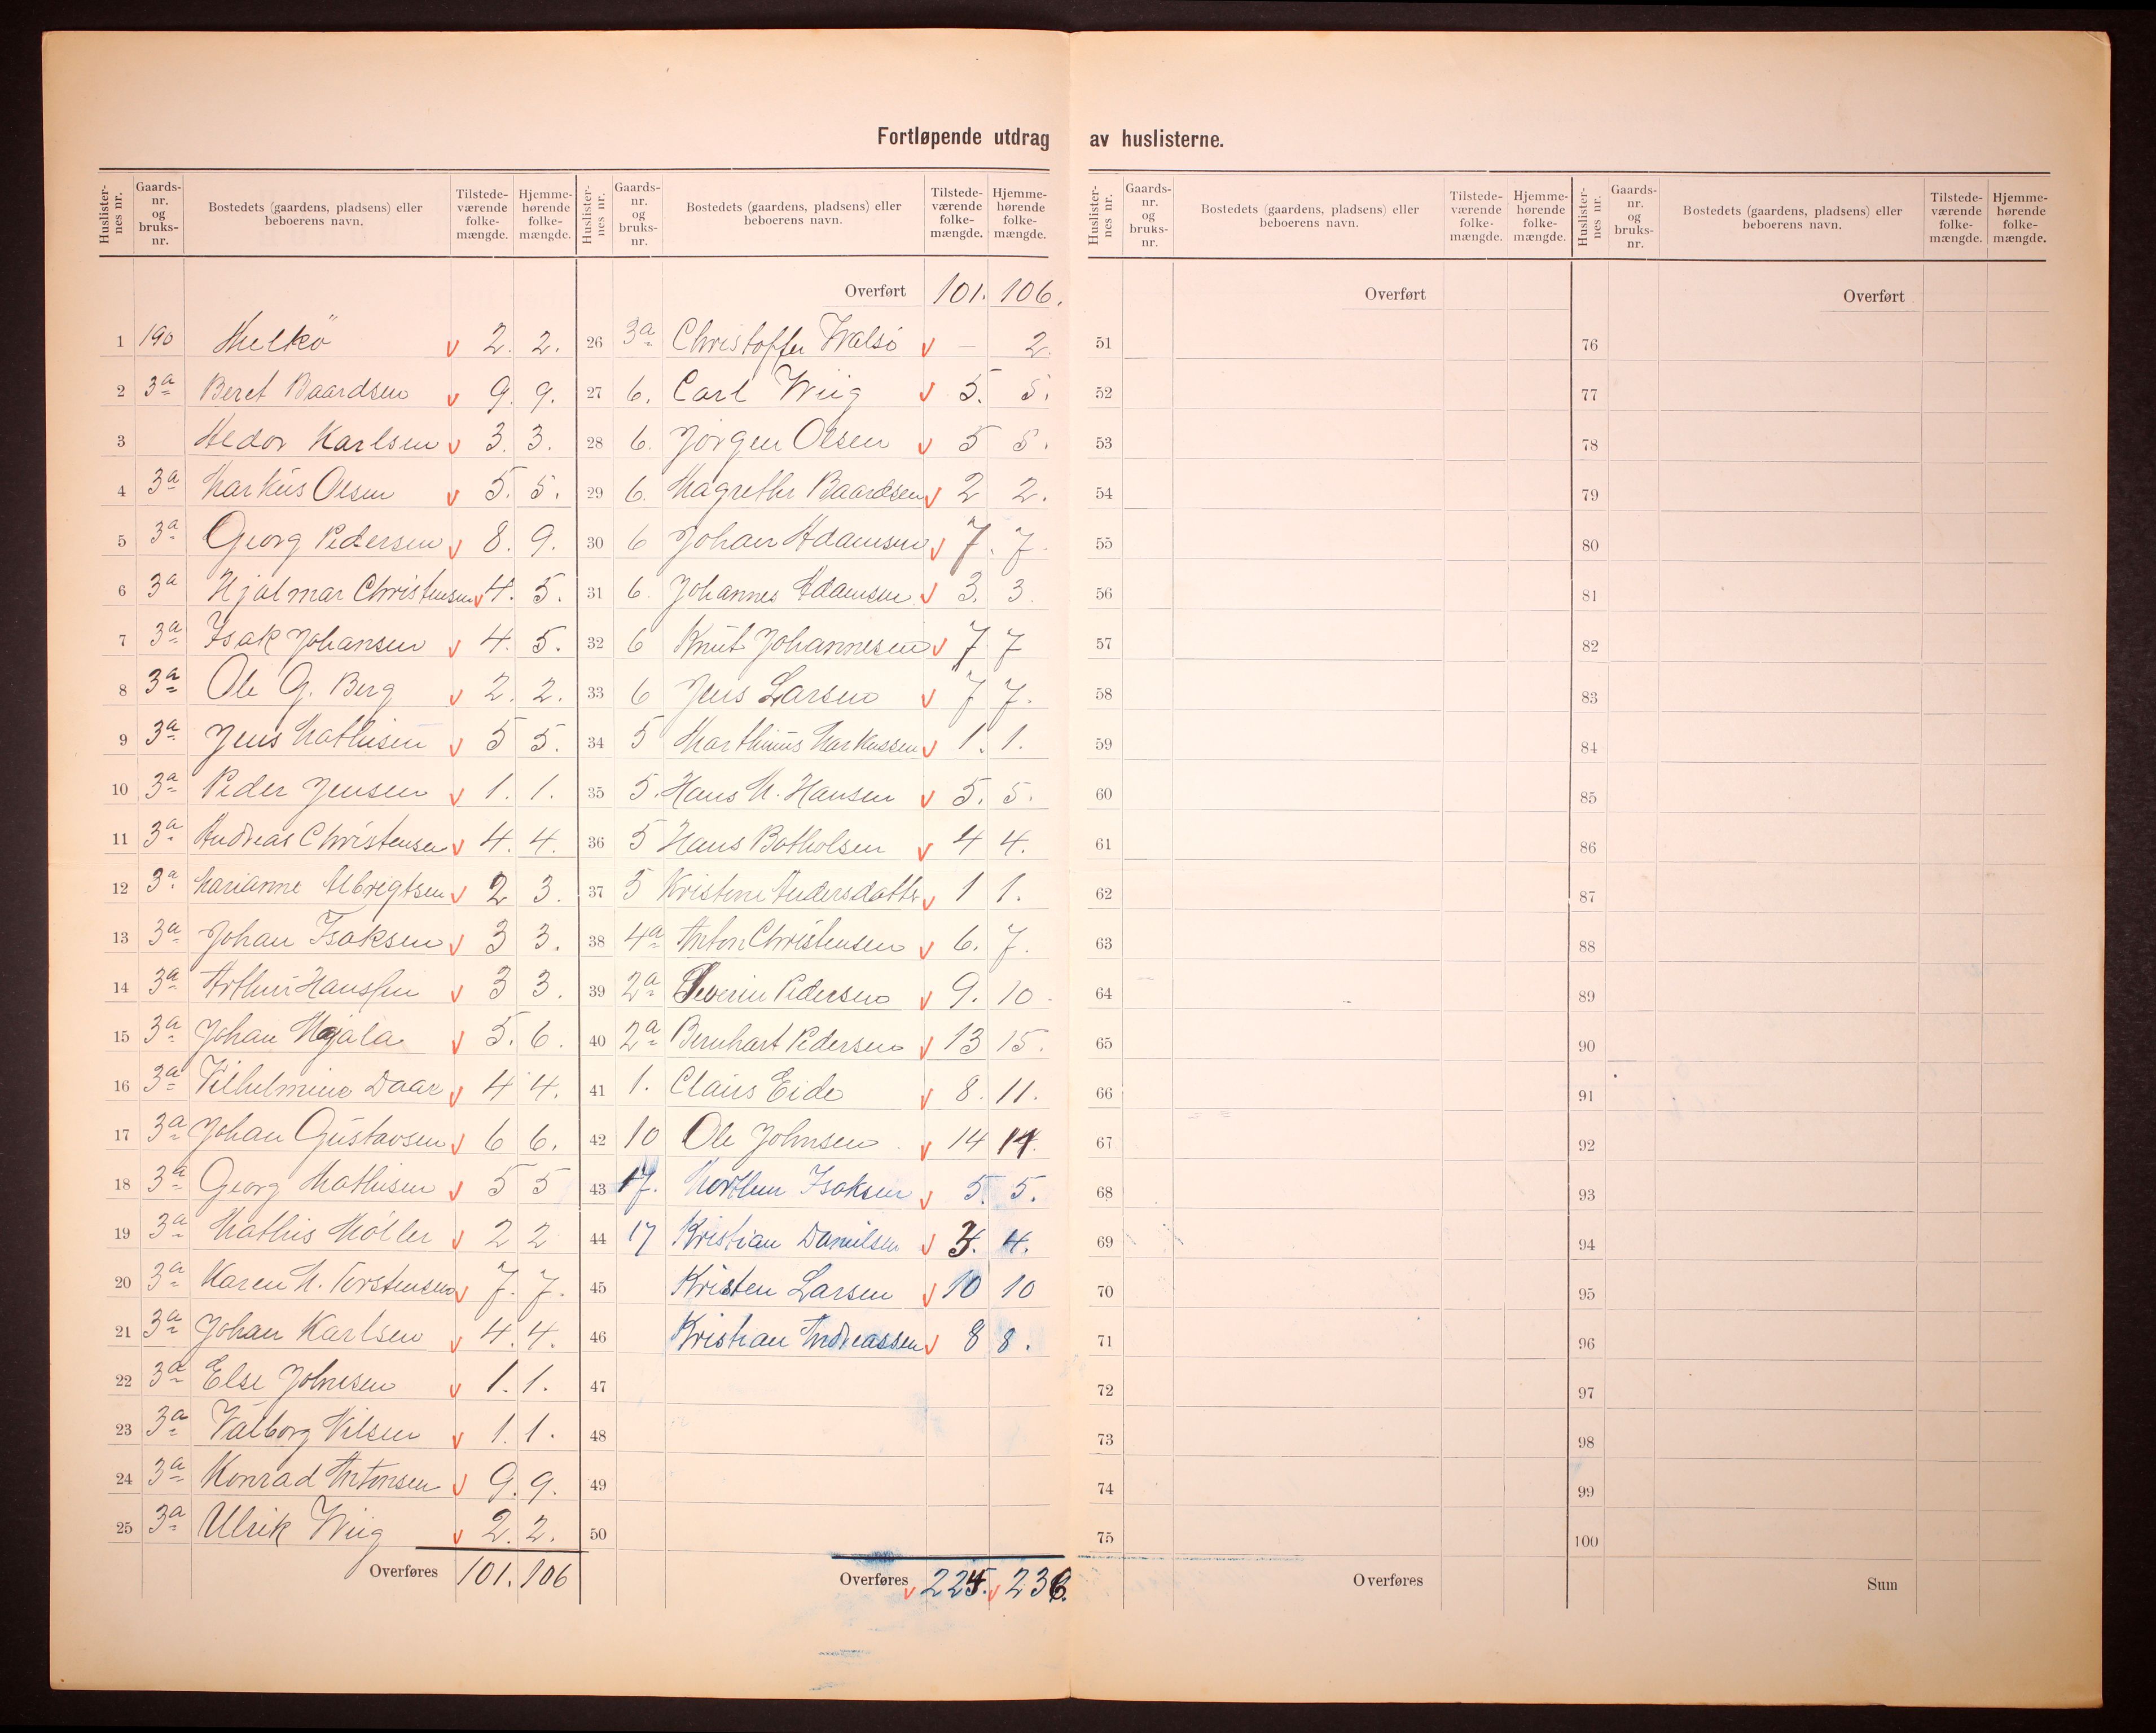 Fortløpende utdrag av huslisterne.
Huslister-nes nr. Gaards-nr. og bruks-nr. Bostedets (gaardens, pladsens) eller beboerens navn. Tilstede-værende folke-mængde. Hjemme-hørende folke-mængde.
1 190 Melkö v 2. 2.
2 3a Beret Baardsen v 9. 9.
3 Aldor Karlsen v 3. 3.
4 3a Markus Olsen v 5. 5.
5 3a Georg Pedersen v 8. 9.
6 3a Hjalmar Christensen v 4. 5.
7 3a Isak Johansen v 4. 5.
8 3a Ole G. Berg v 2. 2.
9 3a Jens Mathisen v 5 5.
10 3a Peder Jensen v 1. 1.
11 3a Andreas Christensen v 4. 4.
12 3a Marianne Albrigtsen v 2 3.
13 3a Johan Isaksen v 3 3.
14 3a Arthur Hanssen v 3 3.
15 3a Johan Hajala v 5. 6.
16 3a Vilhelmine Daar v 4 4.
17 3a Johan Gustavsen v 6 6.
18 3a Georg Mathisen v 5 5
19 3a Mathis Möller v 2 2
20 3a Karen M. Torstensen v 7. 7.
21 3a Johan Karlsen v 4. 4.
22 3a Else Johnesen v 1. 1.
23 3a Valborg Nilsen v 1. 1.
24 3a Konrad Antonsen v 9. 9.
25 3a Ulrik Wiig v 2. 2.
Overføres 101. 106
Huslister-nes nr. Gaards-nr. og bruks-nr. Bostedets (gaardens, pladsens) eller beboerens navn. Tilstede-værende folke-mængde. Hjemme-hørende folke-mængde.
Overført 101. 106.
26 3a Christoffer Walsö v – 2.
27 6. Carl Wiig v 5. 5.
28 6. Jörgen Olsen v 5 5.
29 6. Magrethe Baardsen v 2 2.
30 6 Johan Adamsen v 7. 7.
31 6. Johannes Adamsen v 3. 3
32 6 Knut Johannesen v 7 7
33 6 Jens Larsen v 7 7.
34 5 Marthinus Markussen v 1. 1.
35 5. Hans M. Hansen v 5. 5.
36 5 Hans Botholsen v 4 4.
37 5 Kristine Andersdatter v 1 1.
38 4a Anton Christensen v 6. 7.
39 2a Severin Pedersen v 9. 10.
40 2a Bernhart Pedersen v 13 15.
41 1. Claus Eide v 8. 11.
42 10 Ole Johnsen v 14 14.
43 17. Morthen Isaksen v 5. 5.
44 17 Kristian Danielsen v 3. 4.
45 Kristen Larsen v 10 10
46 Kristian Andreassen v 8 8.
47
48
49
50
Overføres v 224. v 236.
Huslister-nes nr. Gaards-nr. og bruks-nr. Bostedets (gaardens, pladsens) eller beboerens navn. Tilstede-værende folke-mængde. Hjemme-hørende folke-mængde.
Overført
51
52
53
54
55
56
57
58
59
60
61
62
63
64
65
66
67
68
69
70
71
72
73
74
75
Overføres
Huslister-nes nr. Gaards-nr. og bruks-nr. Bostedets (gaardens, pladsens) eller beboerens navn. Tilstede-værende folke-mængde. Hjemme-hørende folke-mængde.
Overført
76
77
78
79
80
81
82
83
84
85
86
87
88
89
90
91
92
93
94
95
96
97
98
99
100
Sum